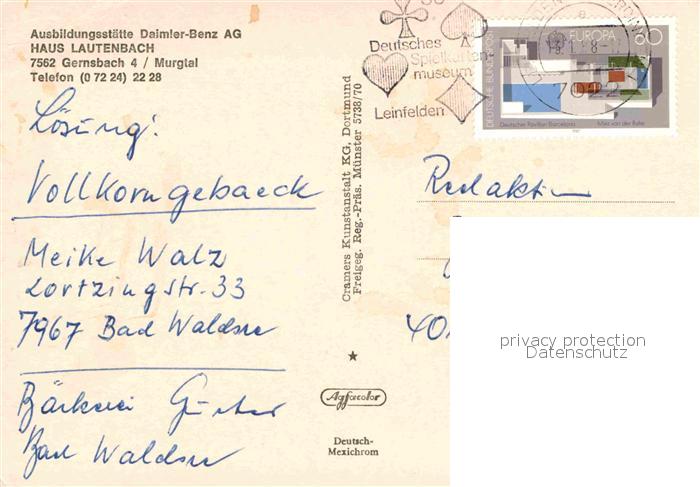 Ausbildungsstätte Daimler-Benz AG
HAUS LAUTENBACH
7562 Gernsbach 4 / Murgtal
Telefon (0 72 24) 22 28
Lösung:
Vollkorngebaeck
Meike Walz
Lortzingstr. 33
7967 Bad Waldsee
Bäckerei Günter
Bad Waldsee
Cramers Kunstanstalt KG, Dortmund
Freigeg. Reg.-Präs. Münster 5738/70
Agfacolor
Deutsch-
Mexichrom
Deutsches
Spielkarten-
museum
Leinfelden
7022
DEUTSCHE BUNDESPOST
EUROPA
60
Deutscher Pavillon Barcelona
Mies van der Rohe
Redaktion
privacy protection
Datenschutz